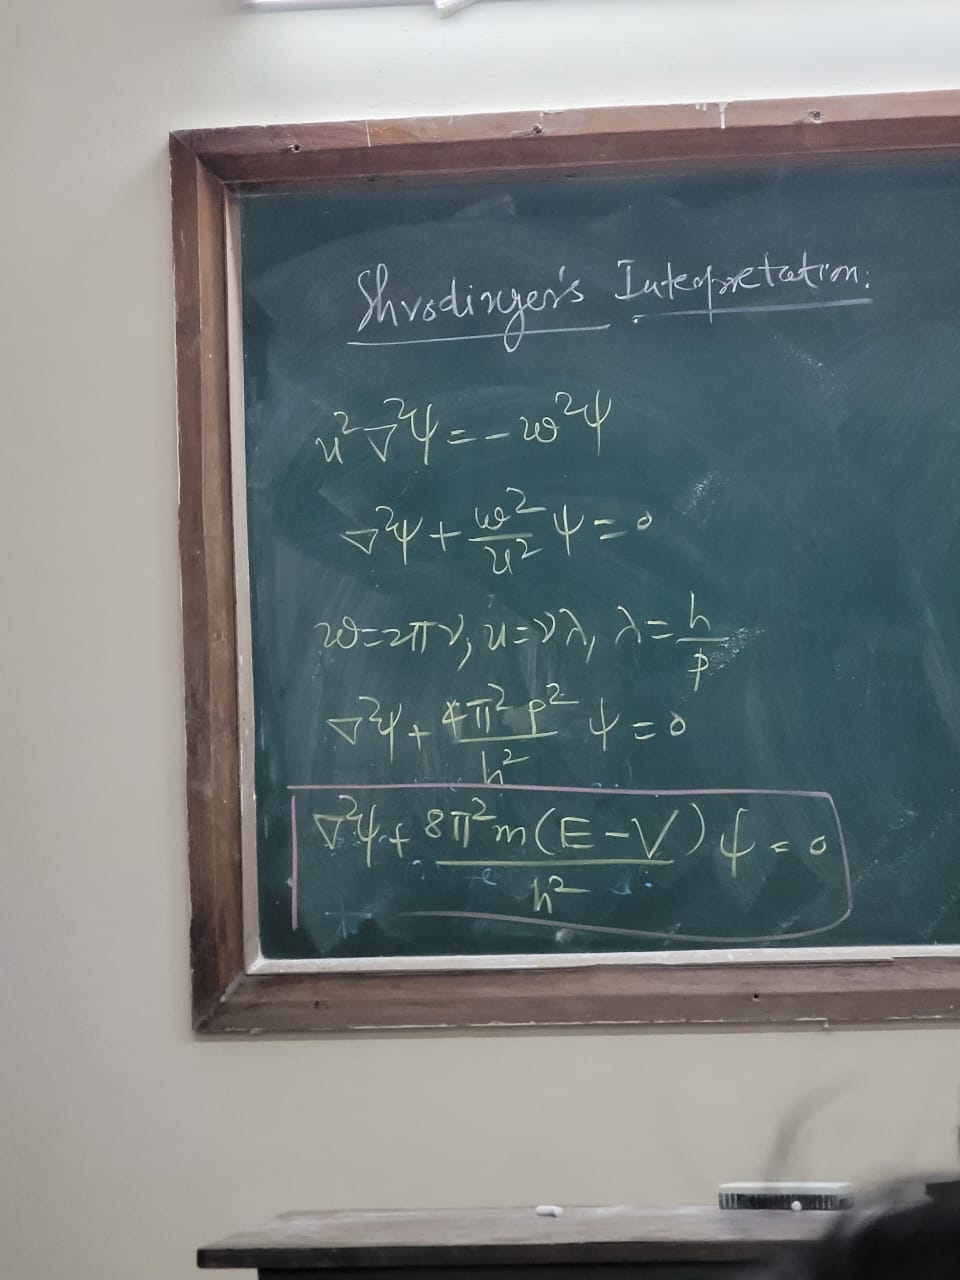 Shrodinger's Interpretation:
u²∇²ψ = -ω²ψ
∇²ψ + ω²/u² ψ = 0
ω = 2πν, u = νλ, λ = h/p
∇²ψ + 4π²p²/h² ψ = 0
∇²ψ + 8π²m(E-V)/h² ψ = 0